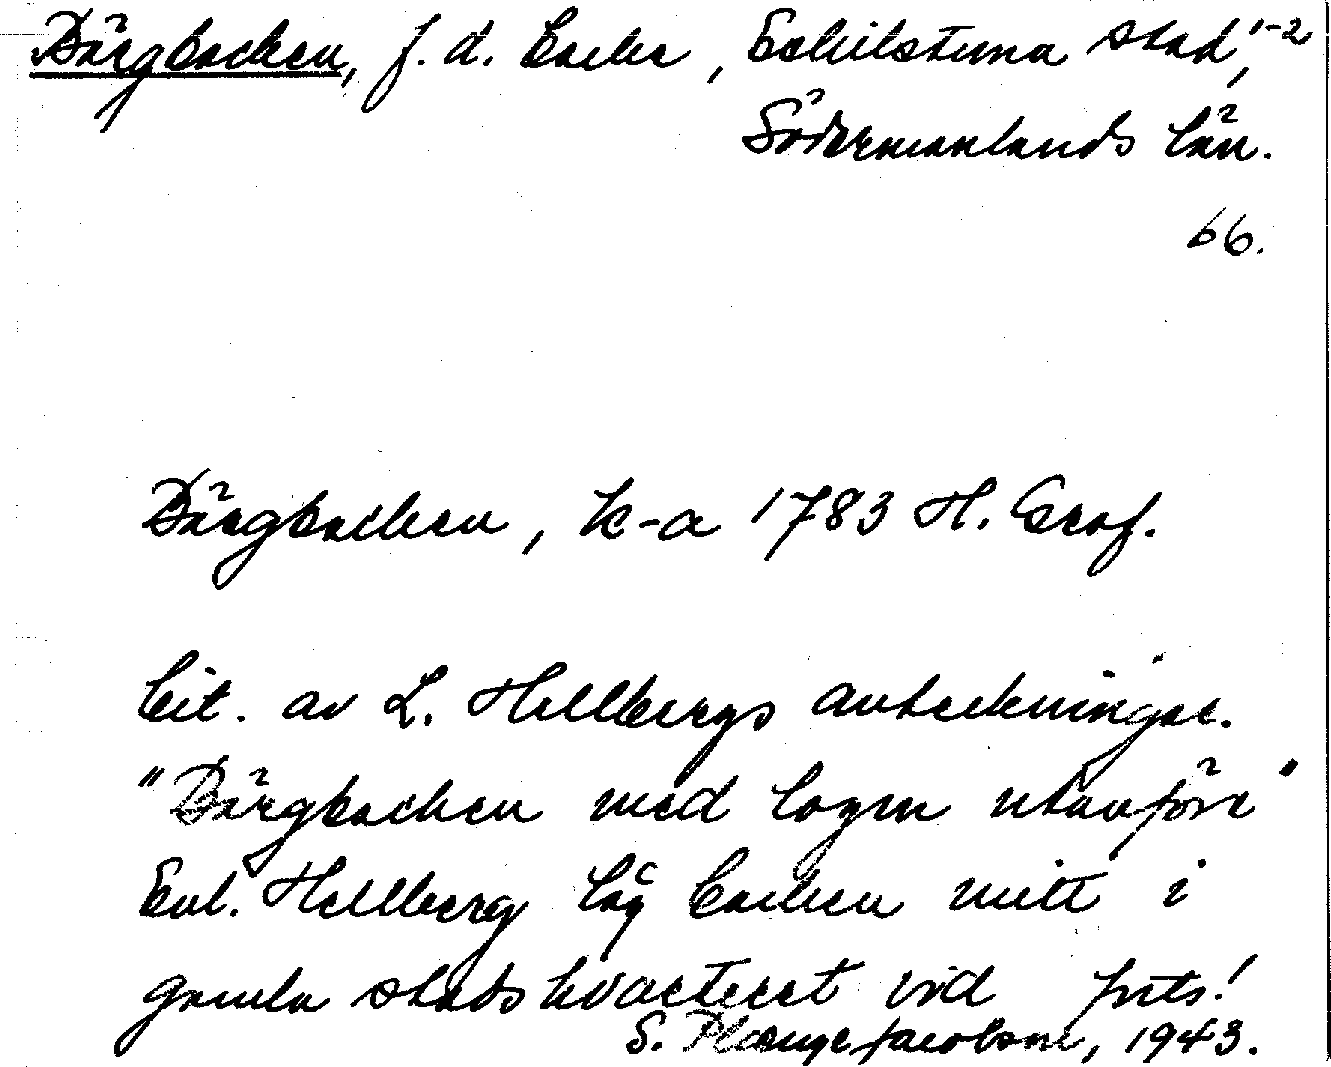 Bärgbacken, f. d. backe, Eskilstuna stad, 1-2
Södermanlands län.
66.
Bärgbacken, k-a 1783 H. Graf.
Cit. av L. Hellbergs anteckningar.
"Bärgbacken med logen utanför"
Enl. Hellberg låg backen mitt i
gamla stadskvarteret vid forts!
S. Plænge Jacobson, 1943.